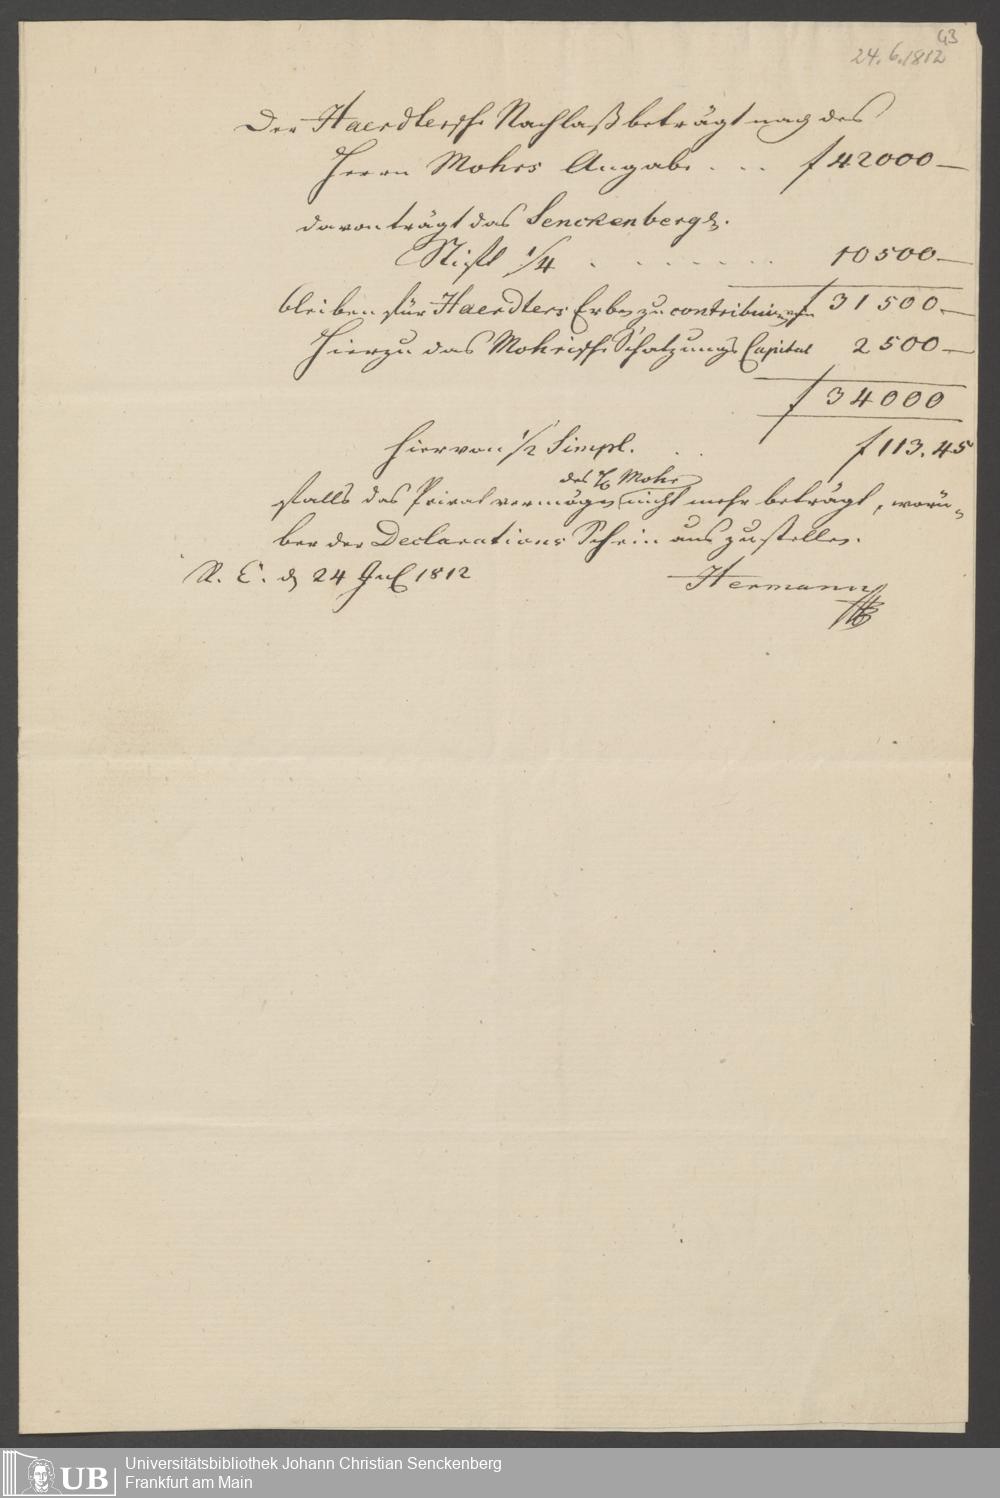 43
24.6.1812
Der Haerdtersche Nachlaß beträgt nach des
Herrn Mohrs Angabe . . . f 42000—
davon trägt das Senckenberg.
Stift 1/4 . . . . . . . 10500—
bleiben für Haerdters Erben zu contribuiren f 31500.—
Hierzu das Mohrische Schatzungs Capital 2500—
f 34000
hiervon 1/2 Simpl. . . f 113.45
des Mohr
falls das Privatvermögen nicht mehr beträgt, worü-
ber der Declarations Schein auszustellen.
R. E. d 24 1812
Hermann
UB
Universitätsbibliothek Johann Christian Senckenberg
Frankfurt am Main